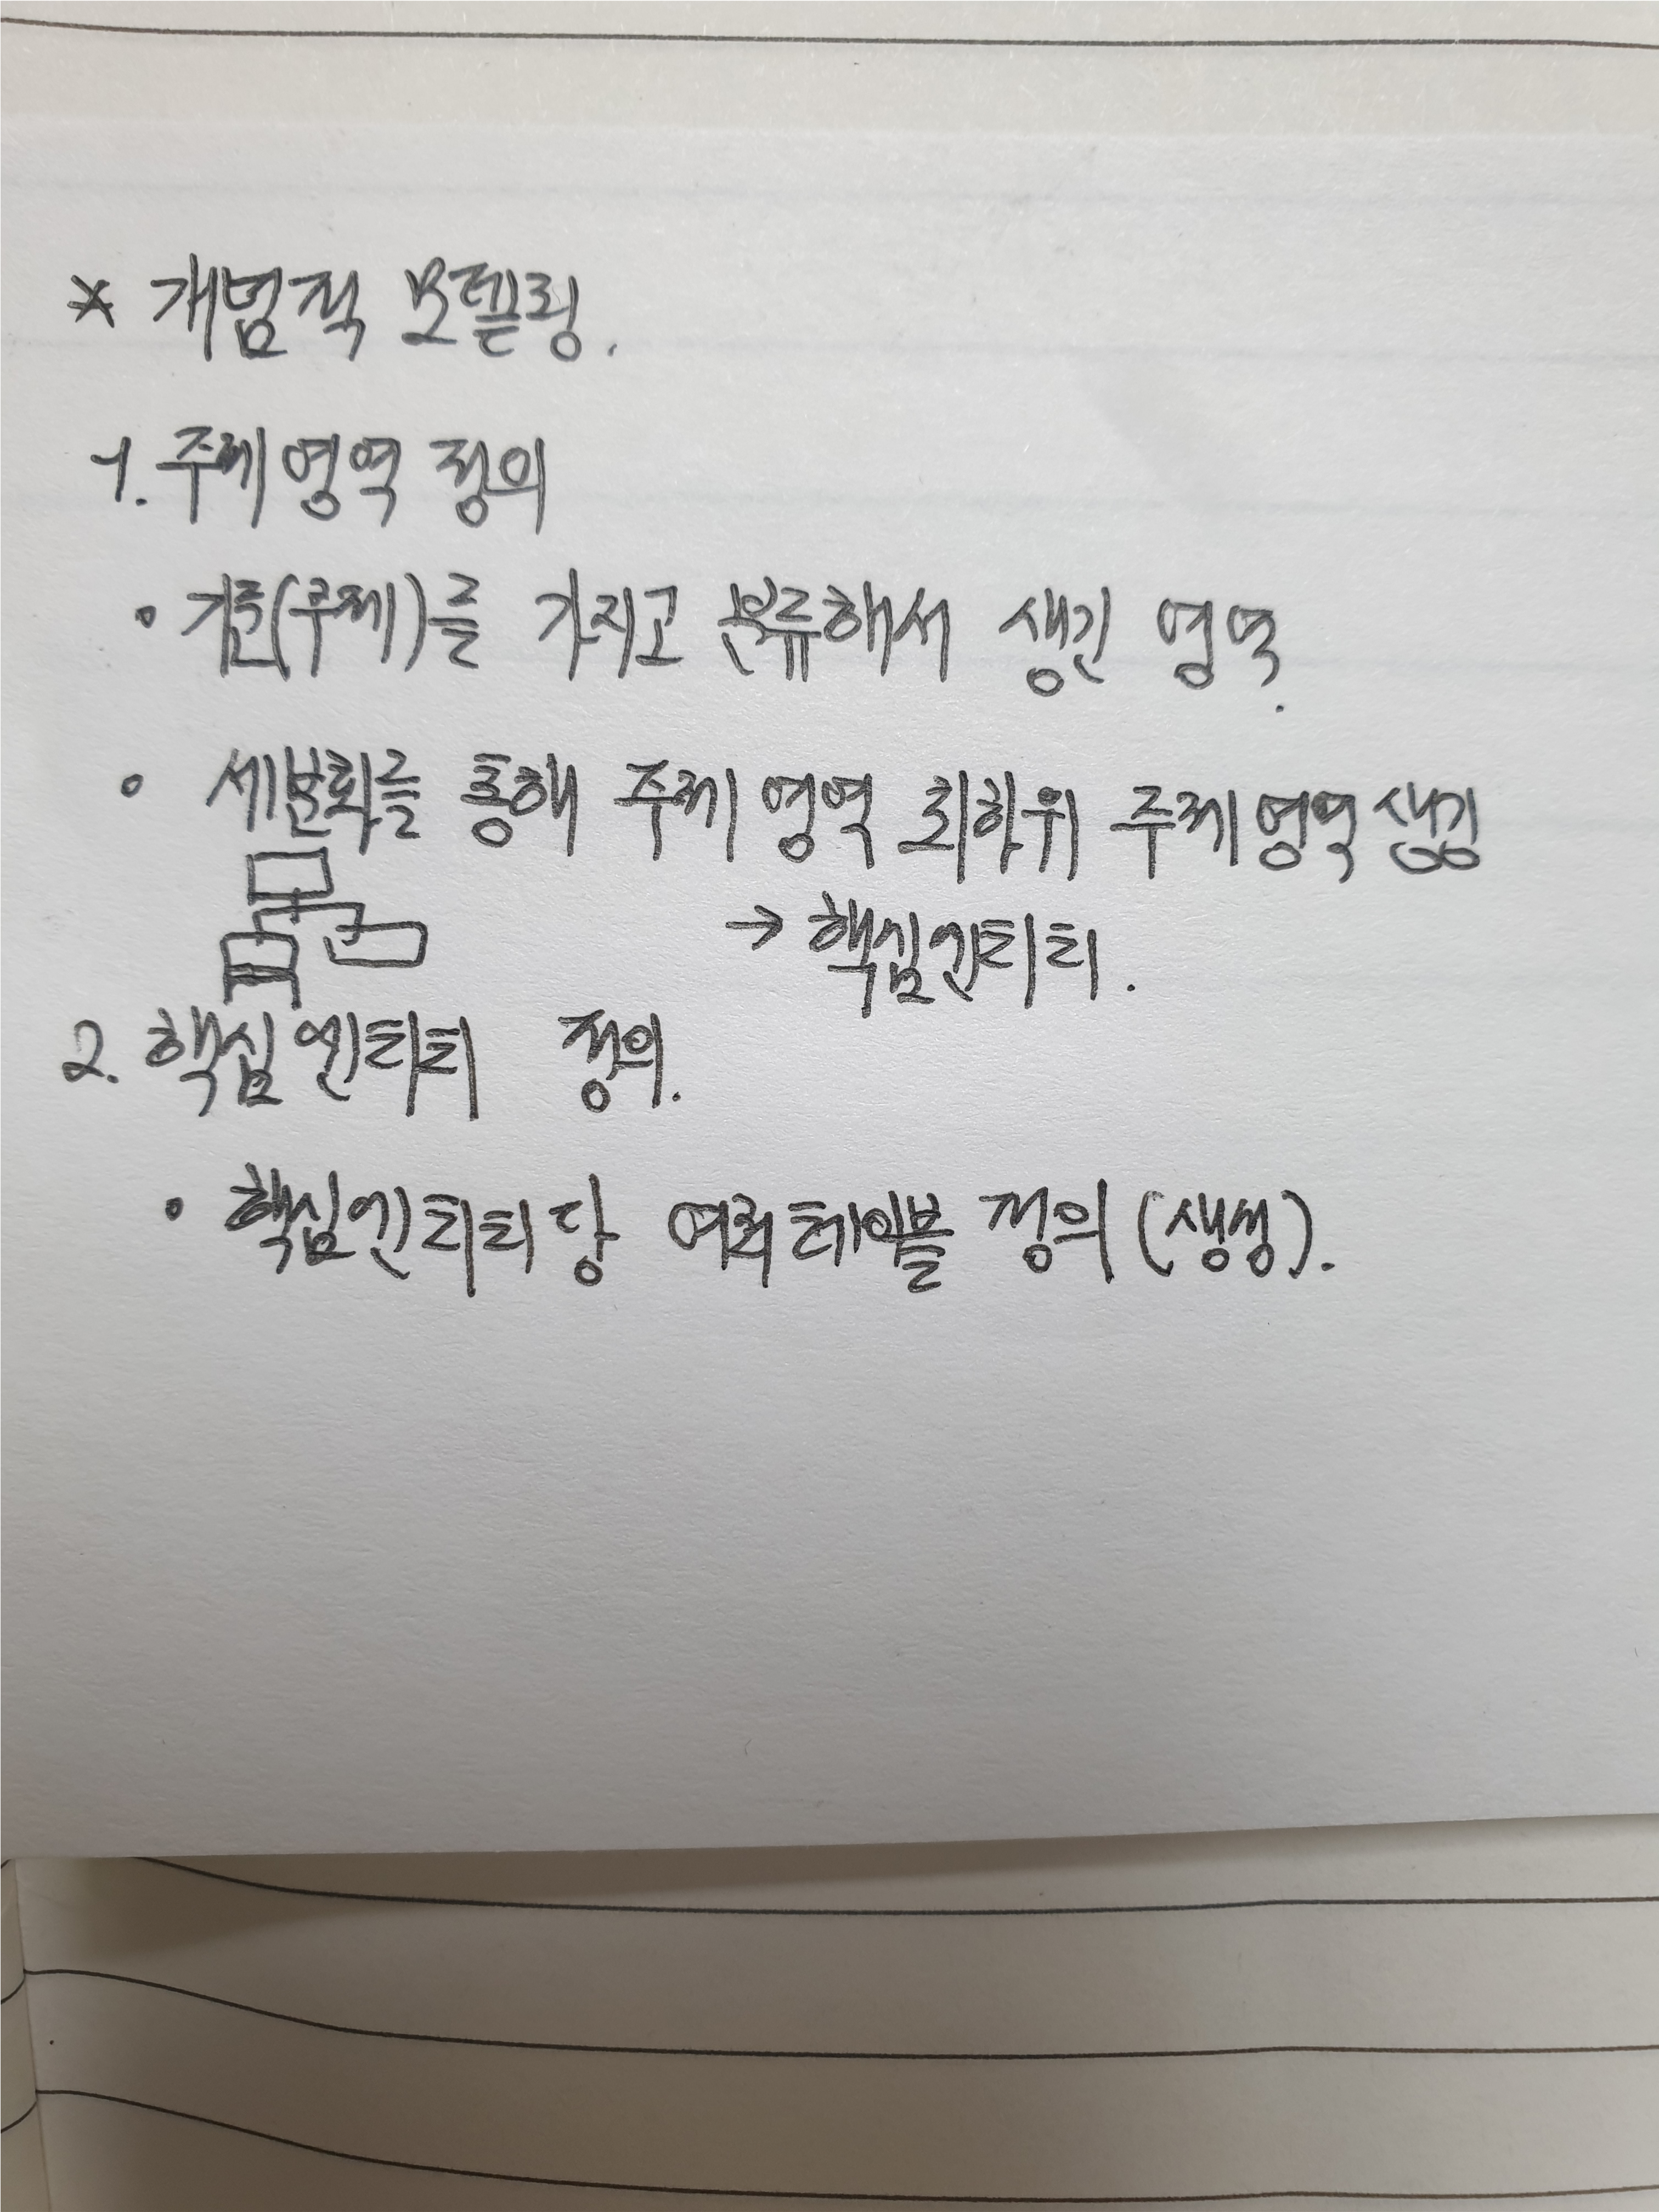 * 개념적 모델링.
1. 주제 영역 정의
• 기준(주제)를 가지고 분류해서 생긴 영역.
• 세분화를 통해 주제 영역 최하위 주제 영역 생김
→ 핵심엔티티.
2. 핵심 엔티티 정의.
• 핵심엔티티당 여러테이블 정의 (생성).